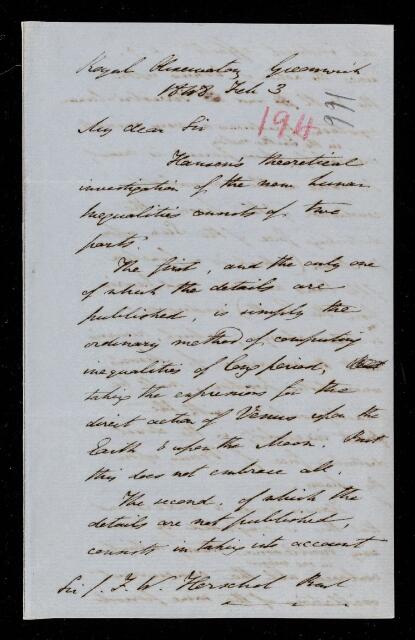 Royal Observatory Greenwich
1848 Feb 3
194
166
My dear Sir
Hansen's theoretical
investigation of the new Lunar
Inequalities consists of two
parts.
The first, and the only one
of which the details are
published, is simply the
ordinary method of computing
inequalities of long period,
taking the expressions for the
direct action of Venus upon the
Earth & upon the Moon. But
this does not embrace all.
The second, of which the
details are not published,
consists in taking into account
Sir J. F. W. Herschel Bart